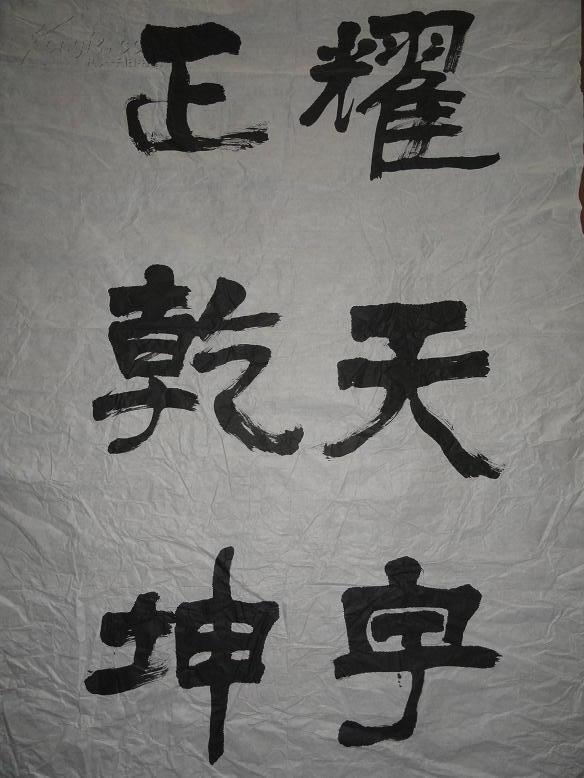 耀天字
正乾坤